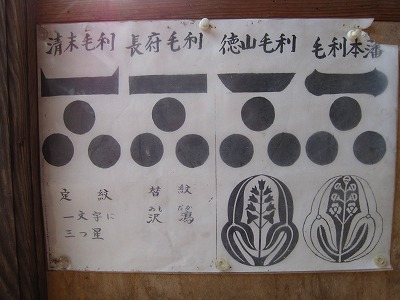 毛利本藩
徳山毛利
長府毛利
清末毛利
替紋
沢瀉
おも
だか
定紋
一文字に
三つ星